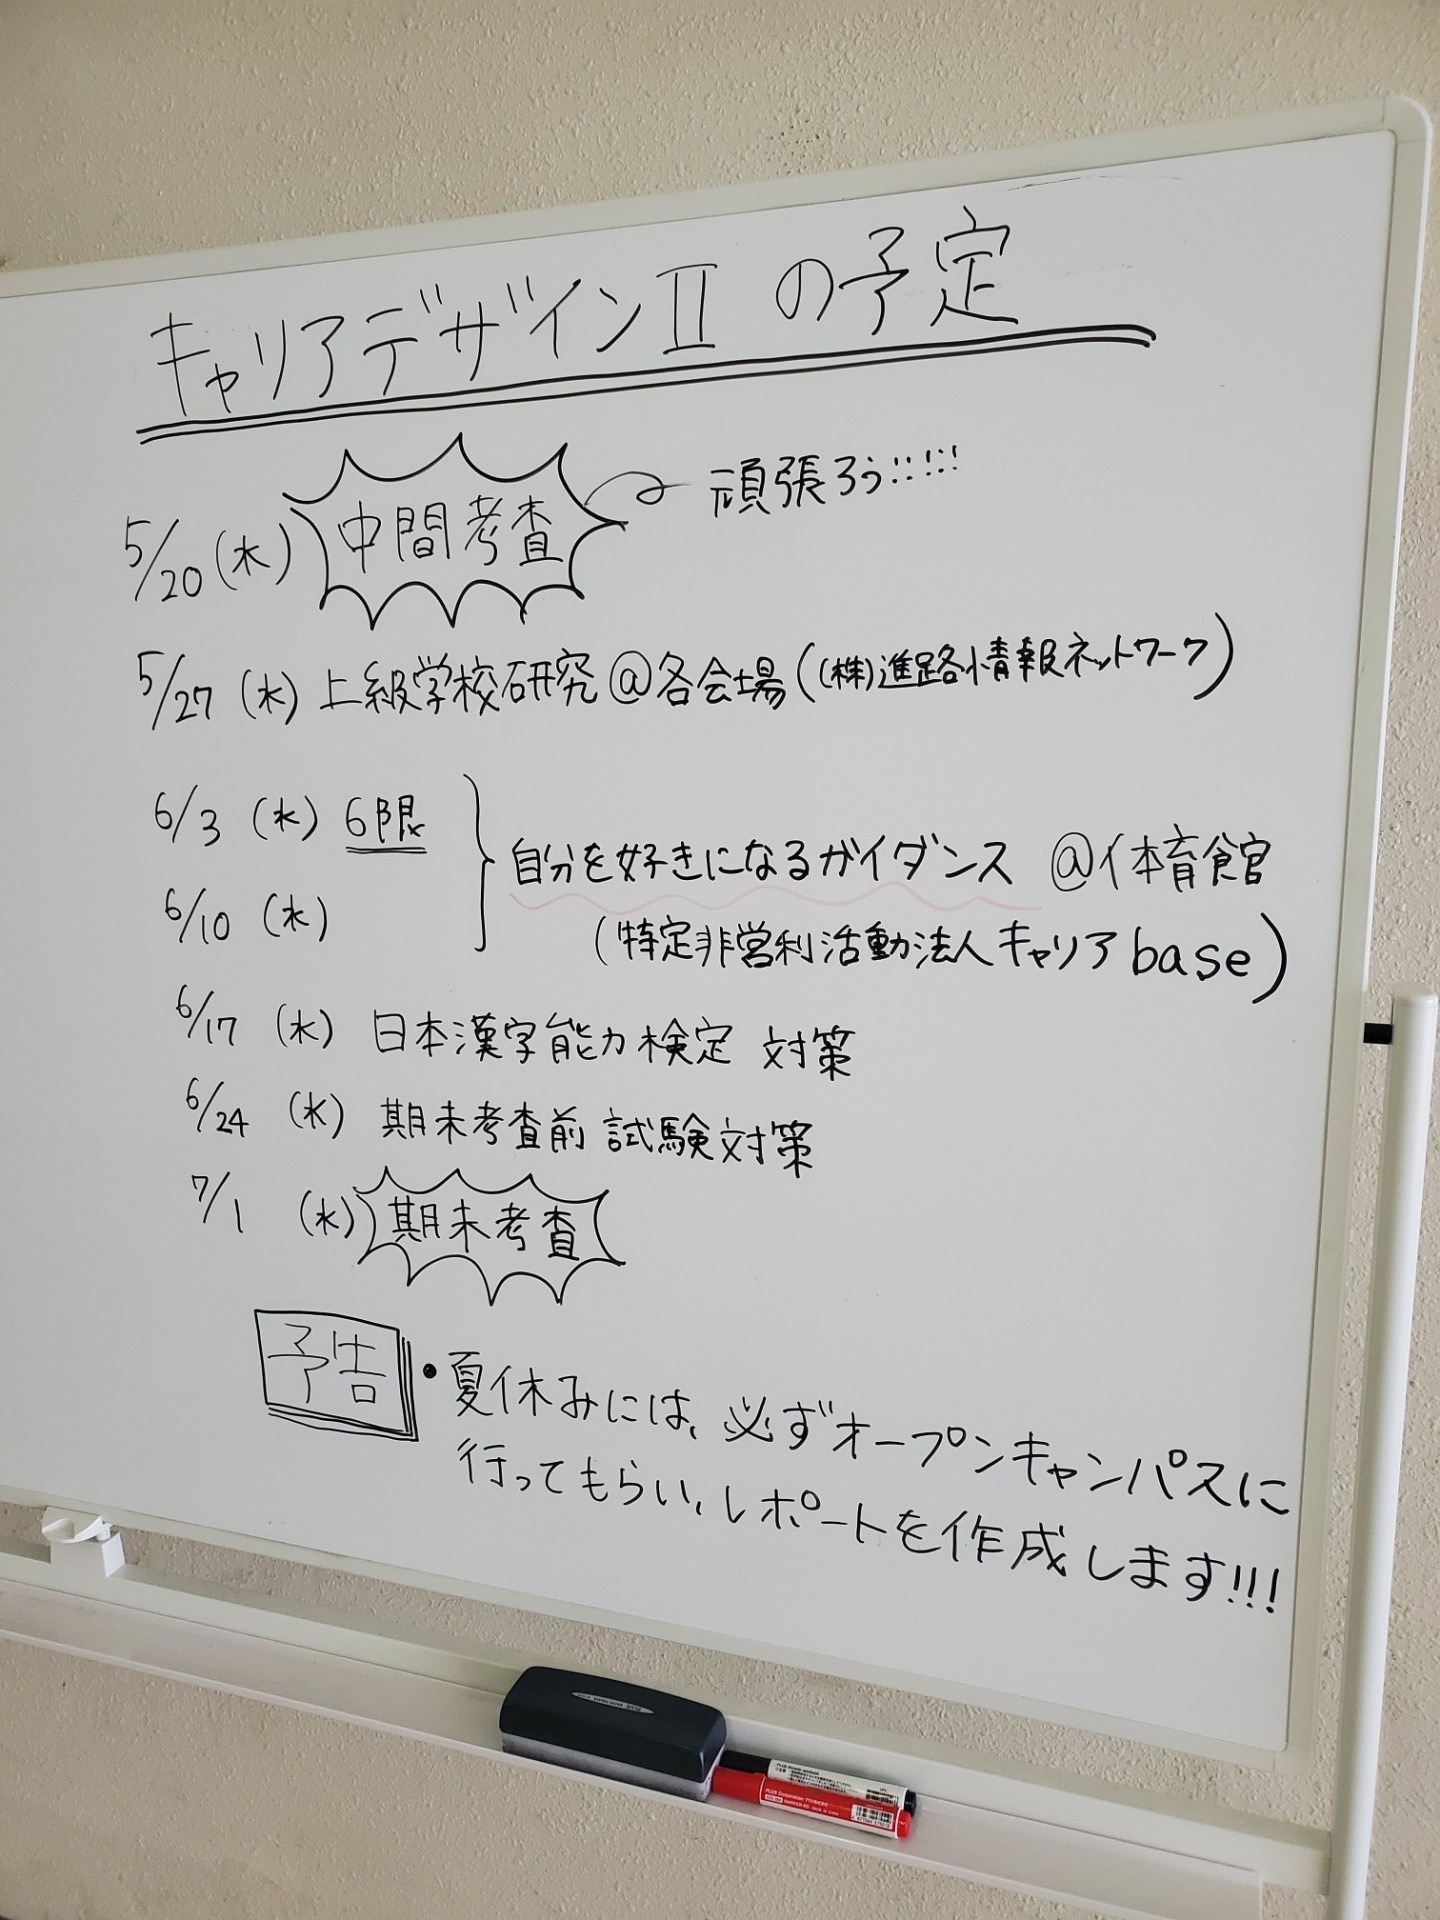 キャリアデザインⅡの予定
5/20(水) 中間考査 頑張ろう!!!!!
5/27(水) 上級学校研究@各会場((株)進路情報ネットワーク)
6/3(水) 6限
6/10(水)
自分を好きになるガイダンス @体育館
(特定非営利活動法人キャリアbase)
6/17(水) 日本漢字能力検定 対策
6/24(水) 期末考査前 試験対策
7/1(水) 期末考査
予告
・夏休みには、必ずオープンキャンパスに
行ってもらい、レポートを作成します!!!